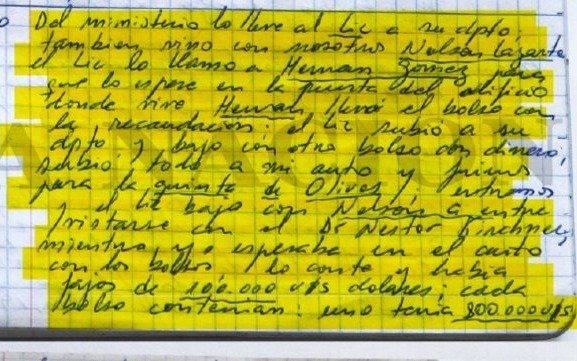 Del ministerio lo lleve al Lic a su dpto,
tambien vino con nosotros Nelson Lazarte
el Lic lo llamo a Hernan Gomez para
que lo espere en la puerta del edificio
donde vive Hernan llevó el bolso con
la recaudacion; el Lic subió a su
dpto y bajo con otro bolso con dinero,
subio todo a mi auto y fuimos
para la quinta de Olivos; entramos
y el Lic bajo con Nelson a entre
vistarse con el Dr Nestor Kirchner,
mientras yo esperaba en el auto
con los bolsos lo conte y habia
fajos de 100.000 u/s dolares; cada
bolso contenian: uno tenia 800.000 u/s
LA NACION